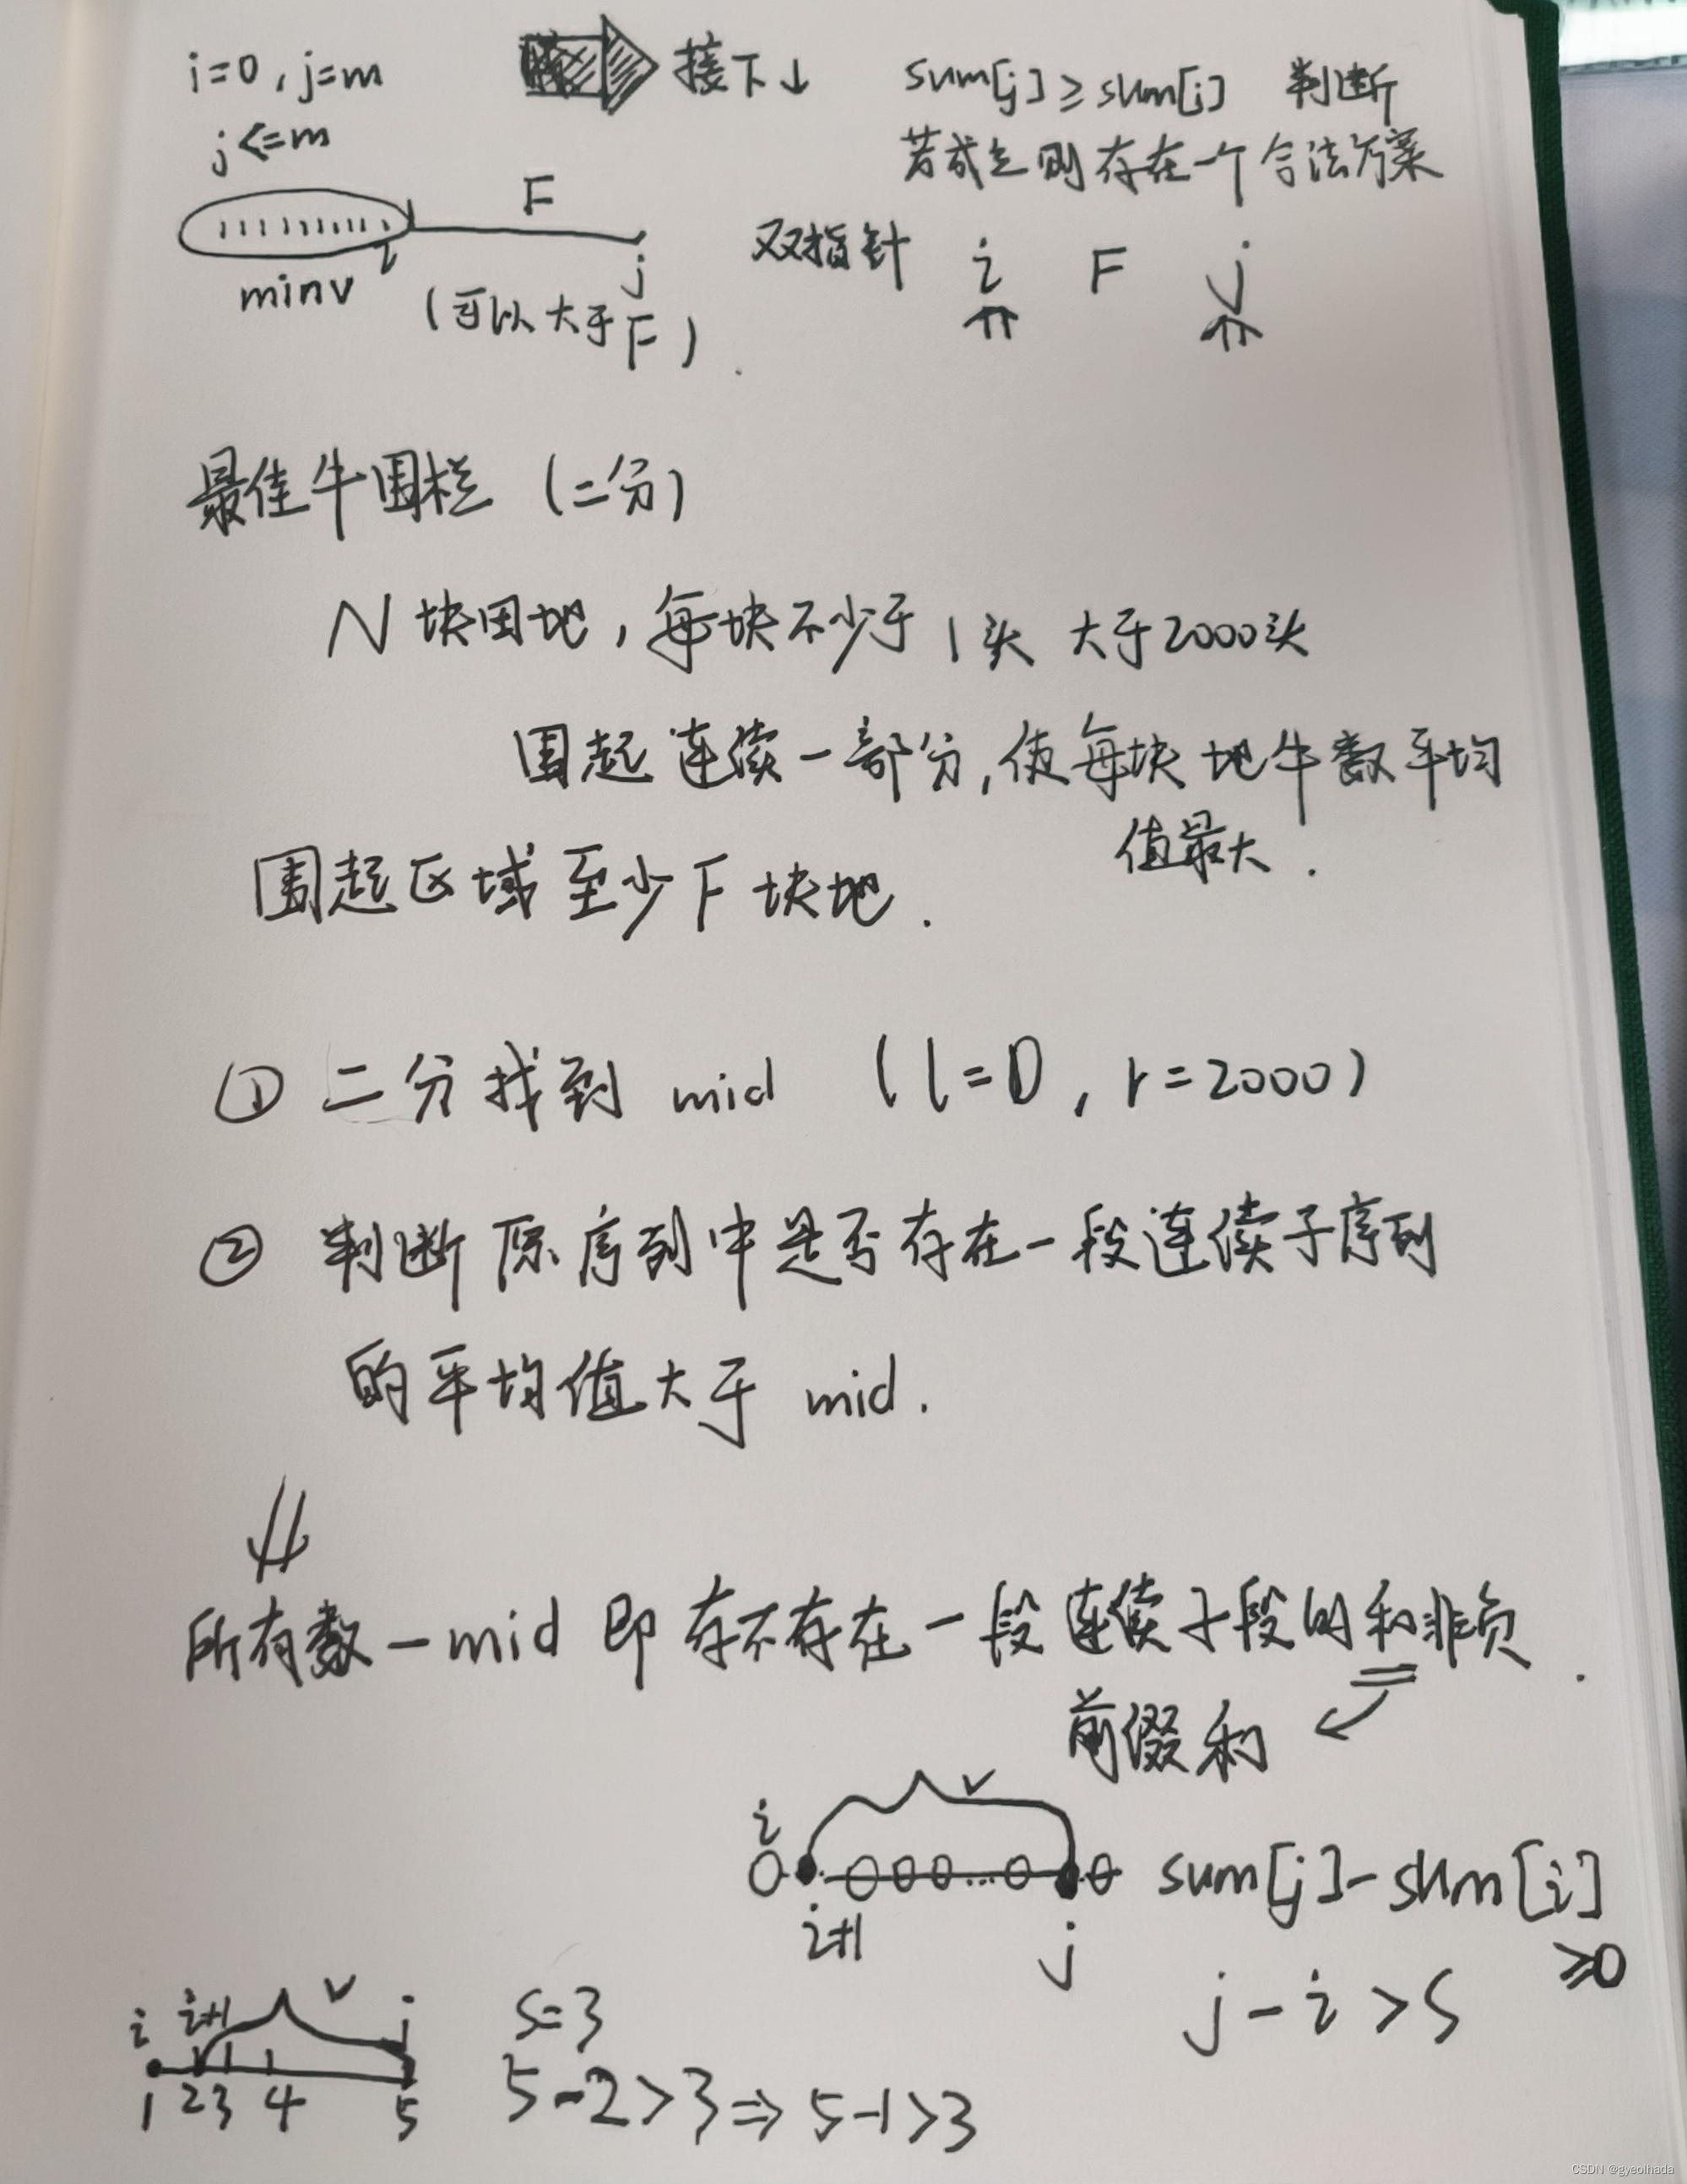 i=0,j=m
接下↓
sum[j]≥sum[i] 判断
j<=m
若成立则存在一个合法方案
F
双指针 i F j
i
j
minv
(可以大于F)
最佳牛围栏 (二分)
N块田地,每块不少于1头 大于2000头
围起连续一部分,使每块地牛数平均
值最大.
围起区域至少F块地.
① 二分找到 mid (l=0,r=2000)
② 判断原序列中是否存在一段连续子序列
的平均值大于 mid.
所有数-mid 即存不存在一段连续子段的和非负.
前缀和
i
sum[j]-sum[i]
≥0
i+1
j
j-i>s
i i+1 j
s=3
1 2 3 4 5
5-2>3⇒5-1>3
CSDN @gyeolhada